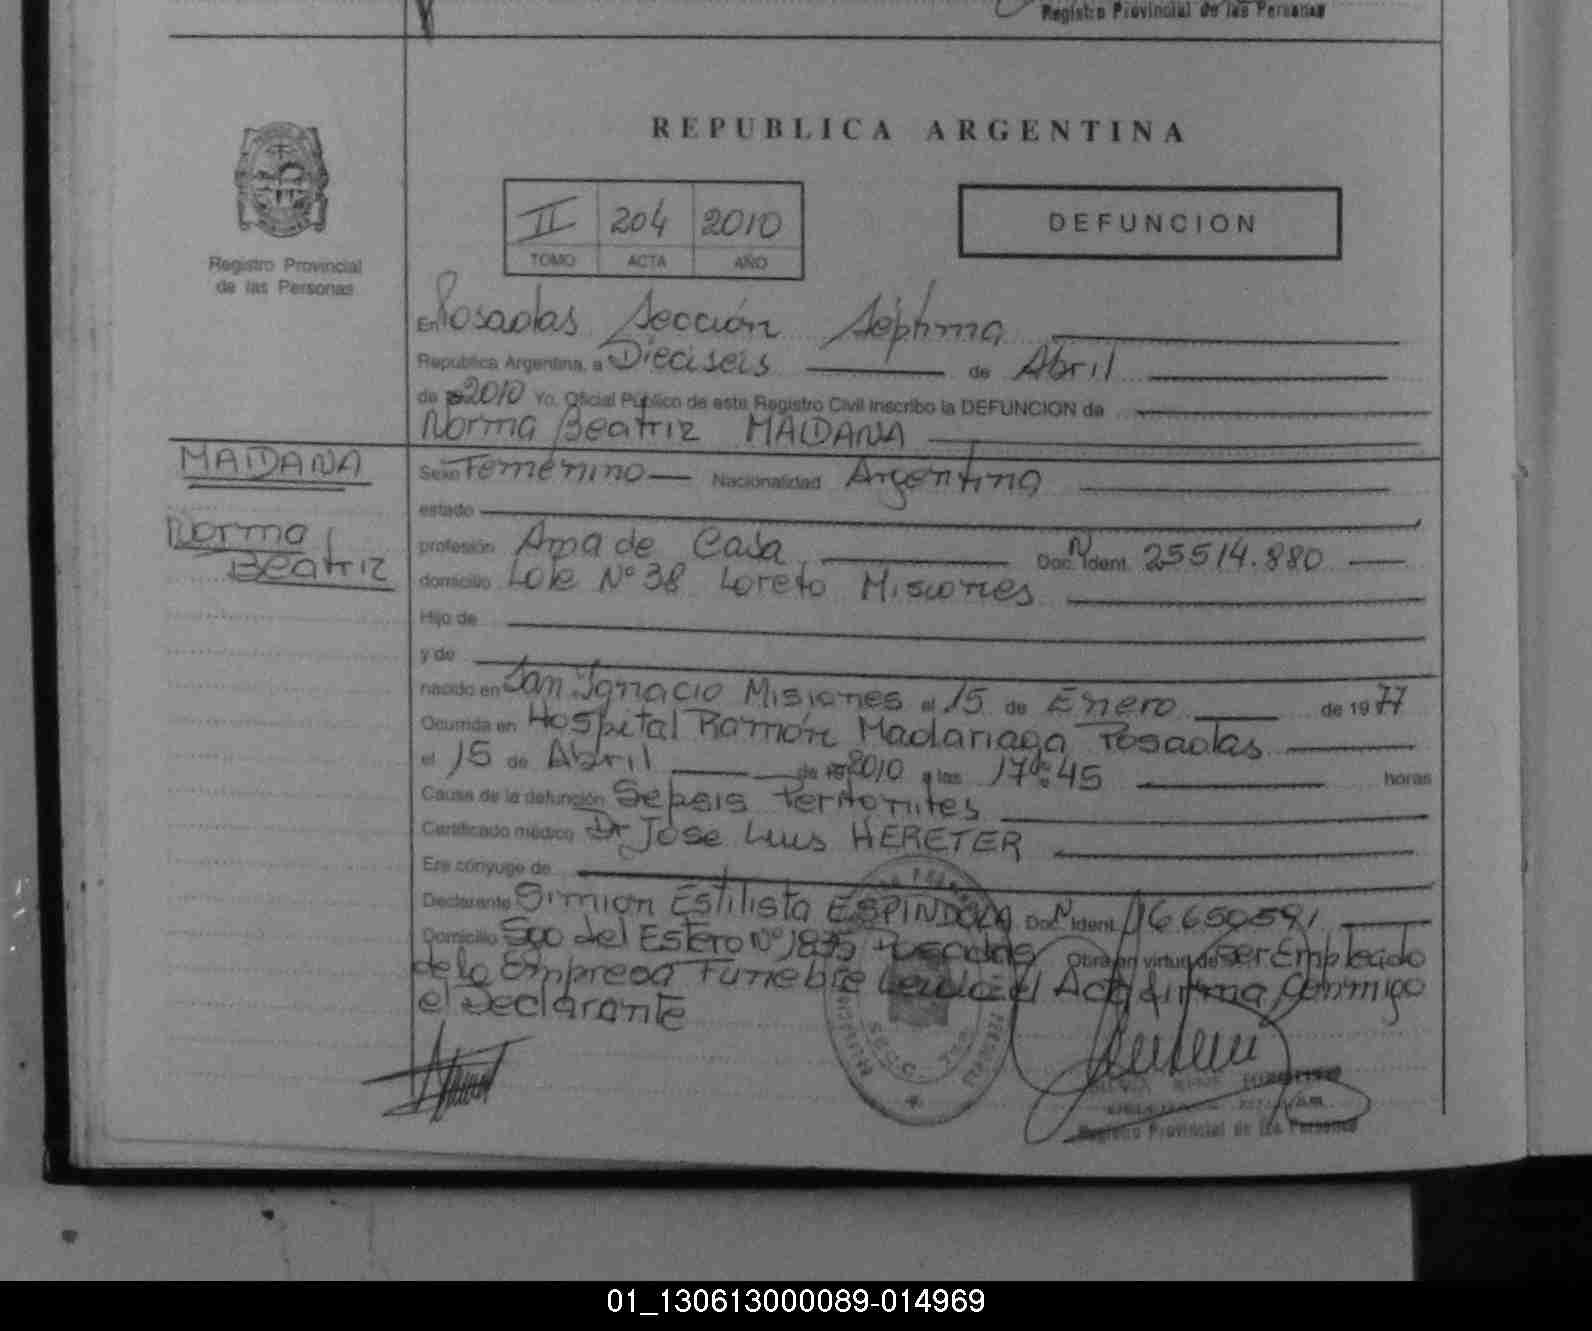 Registro Provincial de las Personas
REPUBLICA ARGENTINA
II 204 2010
TOMO ACTA AÑO
DEFUNCION
Registro Provincial
de las Personas
En Posadas Sección Séptima
Republica Argentina, a Dieciseis de Abril
de 2010 Yo. Oficial Público de este Registro Civil inscribo la DEFUNCION de
Norma Beatriz MAIDANA
MAIDANA
Norma
Beatriz
Sexo Femenino Nacionalidad Argentina
estado
profesión Ama de Casa Doc. N Ident. 25514.880
domicilio Lote Nº 38 Loreto Misiones
Hijo de
y de
nacido en San Ignacio Misiones el 15 de Enero de 1977
Ocurrida en Hospital Ramón Madariaga Posadas
el 15 de Abril de 2010 a las 17:45 horas
Causa de la defunción Sepsis Peritonites
Certificado médico Dr Jose Luis HERETER
Era cónyuge de
Declarante Simion Estilista ESPINDOLA Doc. N Ident. 16650591
Domicilio Sgo del Estero Nº 1835 Posadas Obra en virtud de ser Empleado
de la Empresa Funebre Leida el Acta firma Conmigo
el Declarante
Registro Provincial de las Personas
01_130613000089-014969